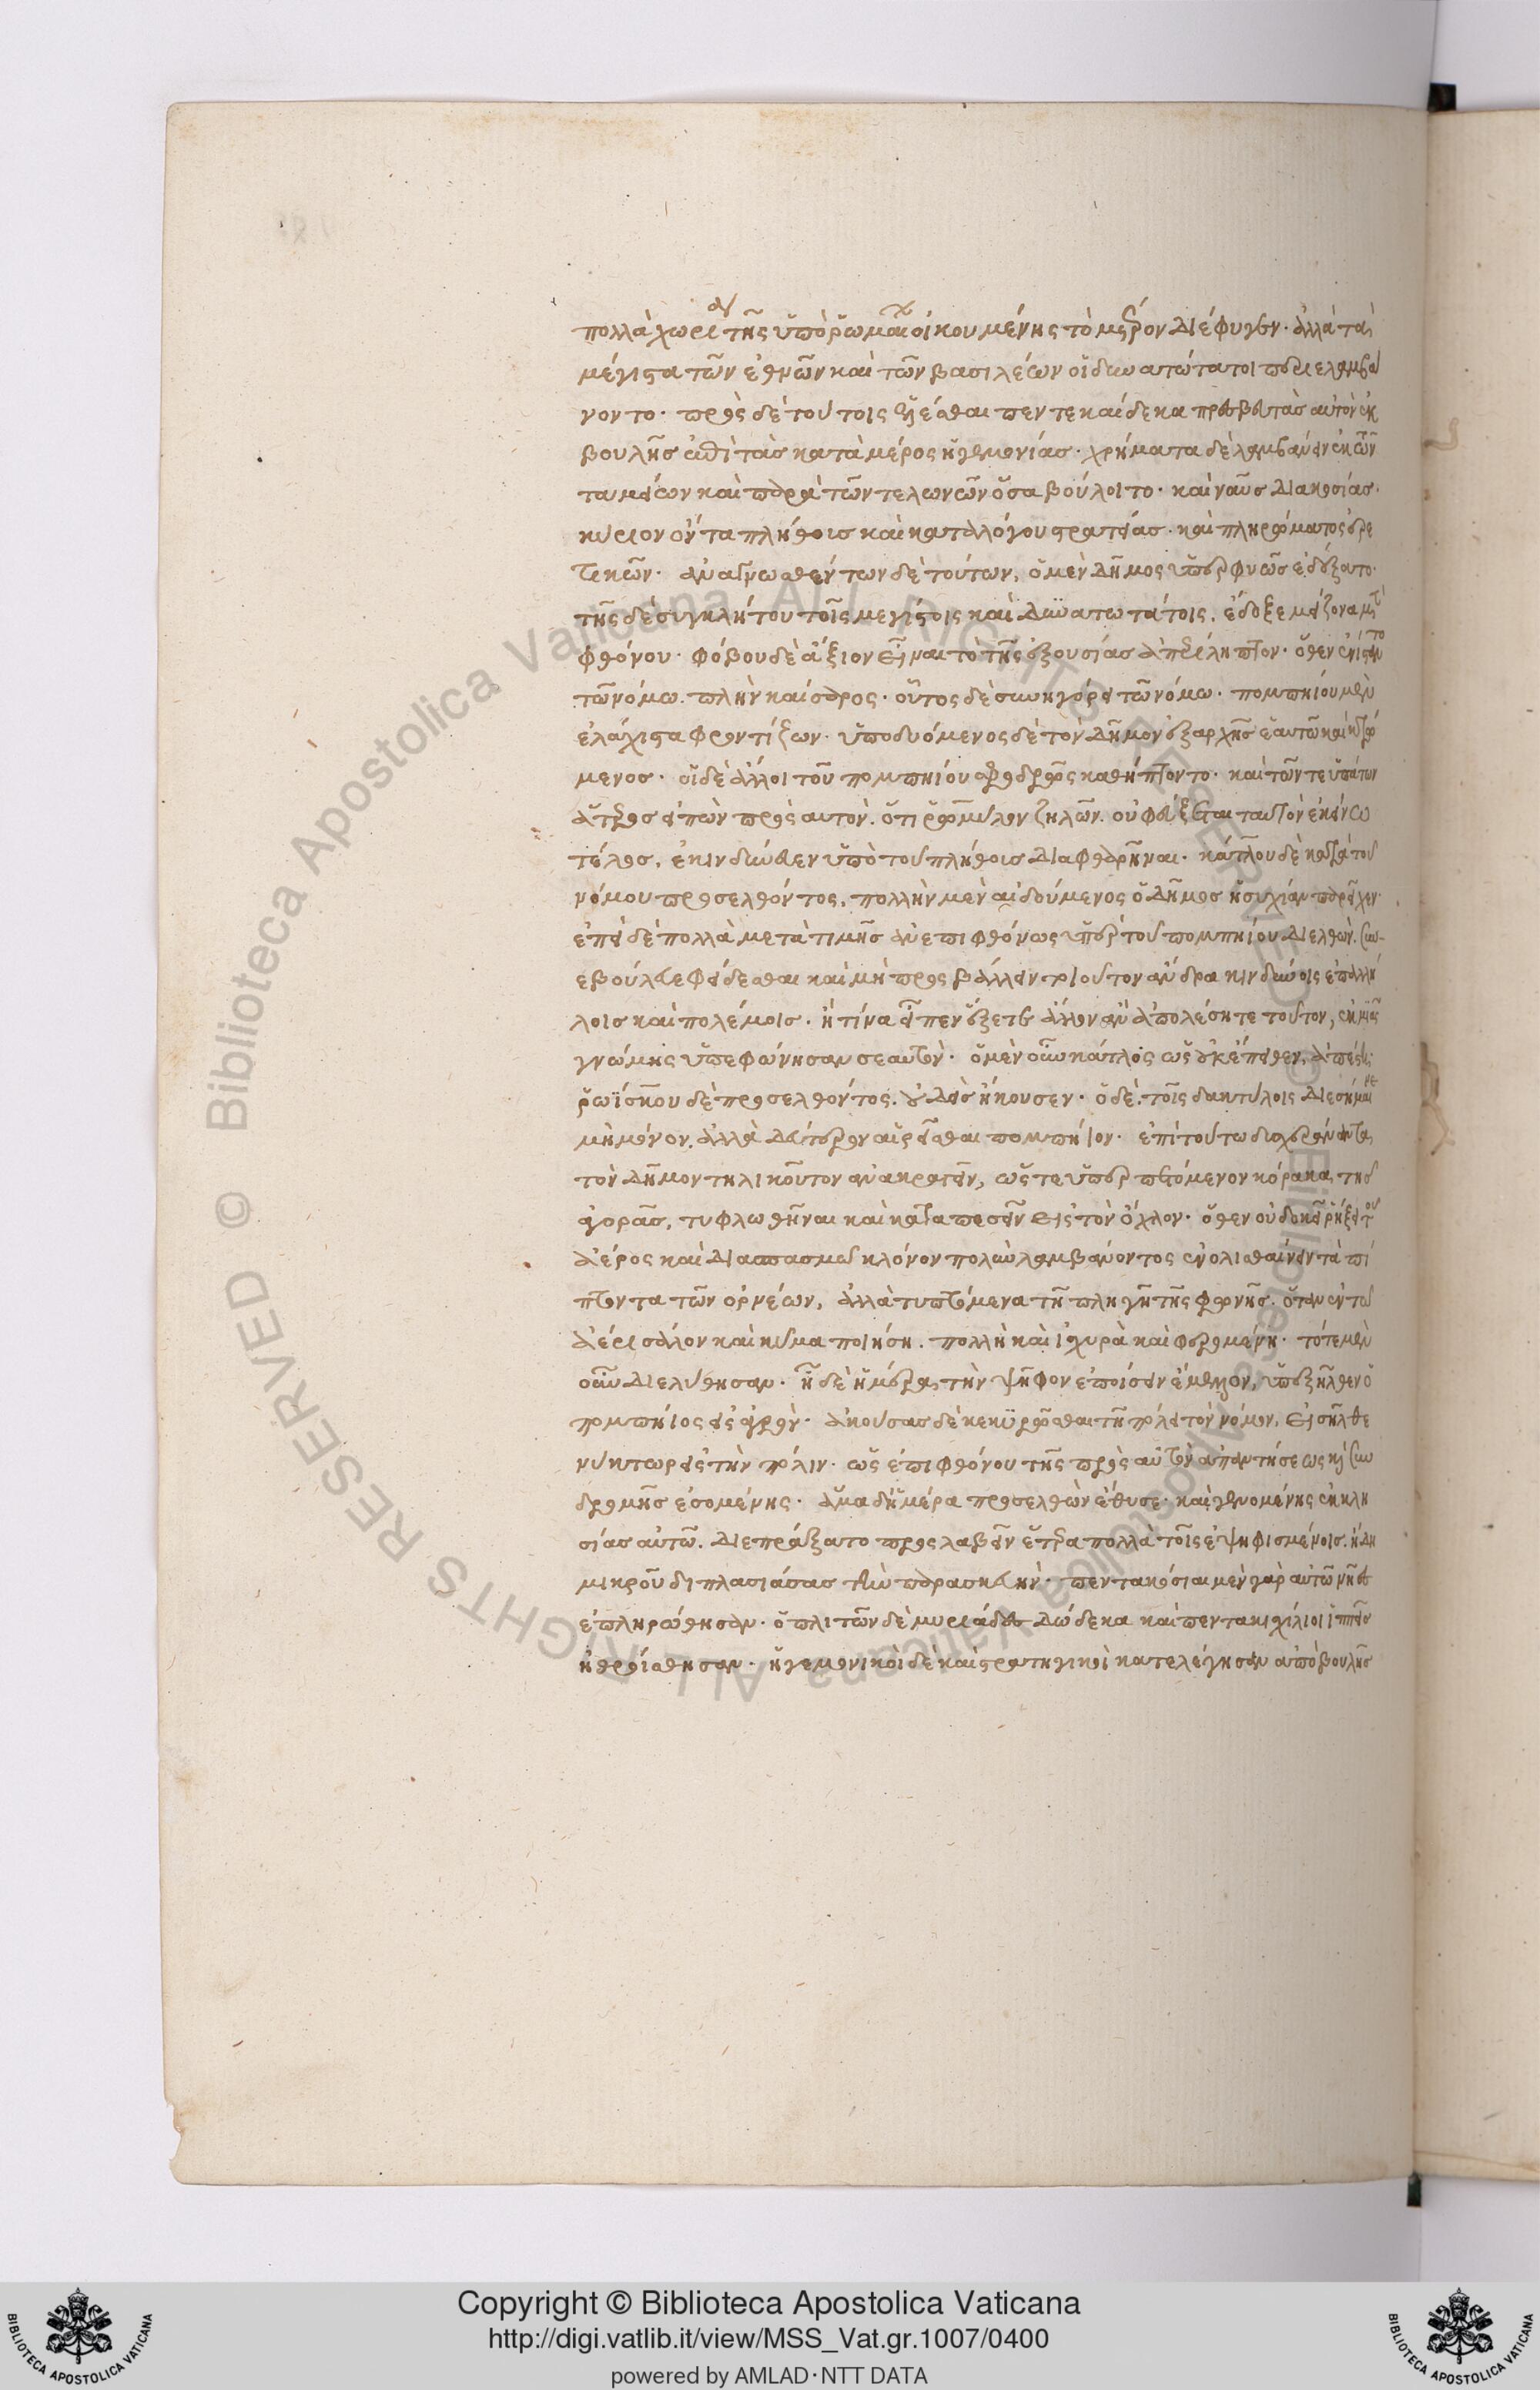 πολλὰ χωρία τῆς ὑπὸ ῥωμαίων οἰκουμένης τὸ μέτρον διέφυγεν· ἀλλὰ τὰ
μέγιστα τῶν ἐθνῶν καὶ τῶν βασιλέων οἱ δυνατώτατοι περιελαμβά
νοντο· πρὸς δὲ τούτοις ἑλέσθαι πεντεκαίδεκα πρεσβευτὰς αὐτὸν ἐκ
βουλῆς ἐπὶ τὰς κατὰ μέρος ἡγεμονίας· χρήματα δὲ λαμβάνειν ἐκ τῶν
ταμιείων καὶ παρὰ τῶν τελωνῶν ὅσα βούλοιτο· καὶ ναῦς διακοσίας·
κύριον ὄντα πλήθους καὶ καταλόγου στρατείας· καὶ πληρώματος ἐρε
τικῶν· ἀναγνωσθέντων δὲ τούτων, ὁ μὲν δῆμος ὑπερφυῶς ἐδέξατο·
τῆς δὲ συγκλήτου τοῖς μεγίστοις καὶ δυνατωτάτοις, ἔδοξε μεῖζον μὲν
φθόνου· φόβου δὲ ἄξιον εἶναι τὸ τῆς ἐξουσίας ἀπερίληπτον· ὅθεν ἐνίσταντο
τῶ νόμω. πλὴν καίσαρος· οὗτος δὲ συνηγόρει τῶ νόμω· πομπηίου μὲν
ἐλάχιστα φροντίζων· ὑποδυόμενος δὲ τὸν δῆμον ἐξαρχῆς ἑαυτῶ καὶ κτώ
μενος· οἱ δὲ ἄλλοι τοῦ πομπηίου σφοδρῶς καθήπτοντο· καὶ τῶν τε ὑπάτων
ἅτερος εἰπὼν πρὸς αυτὸν. ὅτι ῥωμύλον ζηλῶν. οὐ φεύξεται ταυτὸν ἐκείνω
τέλος, ἐκινδύνευσεν ὑπὸ τοῦ πλήθους διαφθαρῆναι· κάτλου δὲ κατὰ τοῦ
νόμου προσελθόντος, πολλὴν μὲν αἰδούμενος ὁ δῆμος ἡσυχίαν παρεῖχεν·
ἐπεὶ δὲ πολλὰ μετὰ τιμῆς ἀνεπιφθόνως ὑπὲρ τοῦ πομπηίου διελθὼν. συν-
εβούλευε φείδεσθαι καὶ μὴ προσβάλλειν τοιοῦτον ἄνδρα κινδύνοις ἐπαλλή
λοις καὶ πολέμοις· ἢ τίνα εἶπεν ἕξετε ἄλλον ἂν ἀπολέσητε τοῦτον, ἐκ μιᾶς
γνώμης ὑπεφώνησαν σεαυτὸν· ὁ μὲν οὖν κάτλος ὡς οὐκ ἔπειθεν, ἀπέστη·
ῥωΐσκου δὲ προσελθόντος. οὐδεὶς ἤκουσεν· ὁ δὲ. τοῖς δακτύλοις διεσήμαινε
μὴ μόνον. ἀλλὰ δεύτερον αἱρεῖσθαι πομπήϊον· ἐπὶ τούτω δυσχεράναντα
τὸν δῆμον τηλικοῦτον ἀνακραγεῖν, ὥστε ὑπερπετόμενον κόρακα τῆς
ἀγορᾶς, τυφλωθῆναι καὶ καταπεσεῖν εἰς τὸν ὄχλον· ὅθεν οὐ δοκεῖ ῥήξει τοῦ
ἀέρος καὶ διασπασμῶ κλόνον πολὺν λαμβάνοντος ἐνολισθαίνειν τὰ πί
πτοντα τῶν ὀρνέων, ἀλλὰ τυπτόμενα τῆ πληγῆ τῆς φωνῆς. ὅταν ἐν τῶ
ἀέρι σάλον καὶ κῦμα ποιήση. πολλὴ καὶ ἰσχυρὰ καὶ φερομένη· τότε μὲν
οὖν διελύθησαν· ἧ δὲ ἡμέρα τὴν ψῆφον ἐποίσειν ἔμελλον, ὑπεξῆλθεν ὁ
πομπήιος εἰς ἀγρὸν· ἀκούσας δὲ κεκυρῶσθαι τῆ πόλει τὸν νόμον, εἰσῆλθε
νύκτωρ εἰς τὴν πόλιν· ὡς ἐπιφθόνου τῆς πρὸς αὐτὸν ἀπαντήσεως καὶ συν
δρομῆς ἐσομένης· ἅμα δ' ἡμέρα προσελθὼν ἔθυσε· καὶ γενομένης ἐκκλη
σίας αὐτῶ. διεπράξατο προσλαβεῖν ἕτερα πολλὰ τοῖς ἐψηφισμένοις. ἤδη
μικροῦ διπλασιάσας τὴν παρασκευὴν· πεντακόσιαι μὲν γὰρ αὐτῶ νῆες
ἐπληρώθησαν· ὁπλιτῶν δὲ μυριάδες δώδεκα καὶ πεντακισχίλιοι ἱππεῖς
ἠθροίσθησαν· ἡγεμονικοὶ δὲ καὶ στρατηγικοὶ κατελέγησαν ἀπὸ βουλῆς
Copyright © Biblioteca Apostolica Vaticana
http://digi.vatlib.it/view/MSS_Vat.gr.1007/0400
powered by AMLAD·NTT DATA